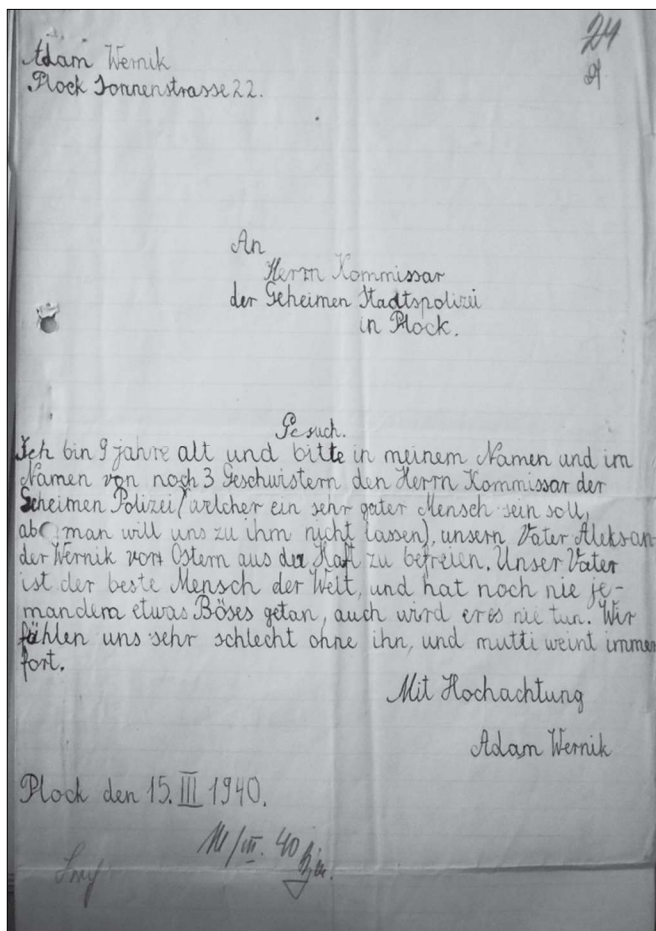 24
Adam Wernik
Plock Sonnenstrasse 22.
An
Herrn Kommissar
der Geheimen Stadtspolizei
in Plock.
Gesuch.
Ich bin 9 jahre alt und bitte in meinem Namen und im
Namen von noch 3 Geschwistern den Herrn Kommissar der
Geheimen Polizei (welcher ein sehr guter Mensch sein soll,
aber man will uns zu ihm nicht lassen), unsern Vater Aleksan-
der Wernik vor Ostern aus der Haft zu befreien. Unser Vater
ist der beste Mensch der Welt, und hat noch nie je-
mandem etwas Böses getan, auch wird er es nie tun. Wir
fühlen uns sehr schlecht ohne ihn, und mutti weint immer
fort.
Mit Hochachtung
Adam Wernik
Plock den 15. III 1940.
/III. 40